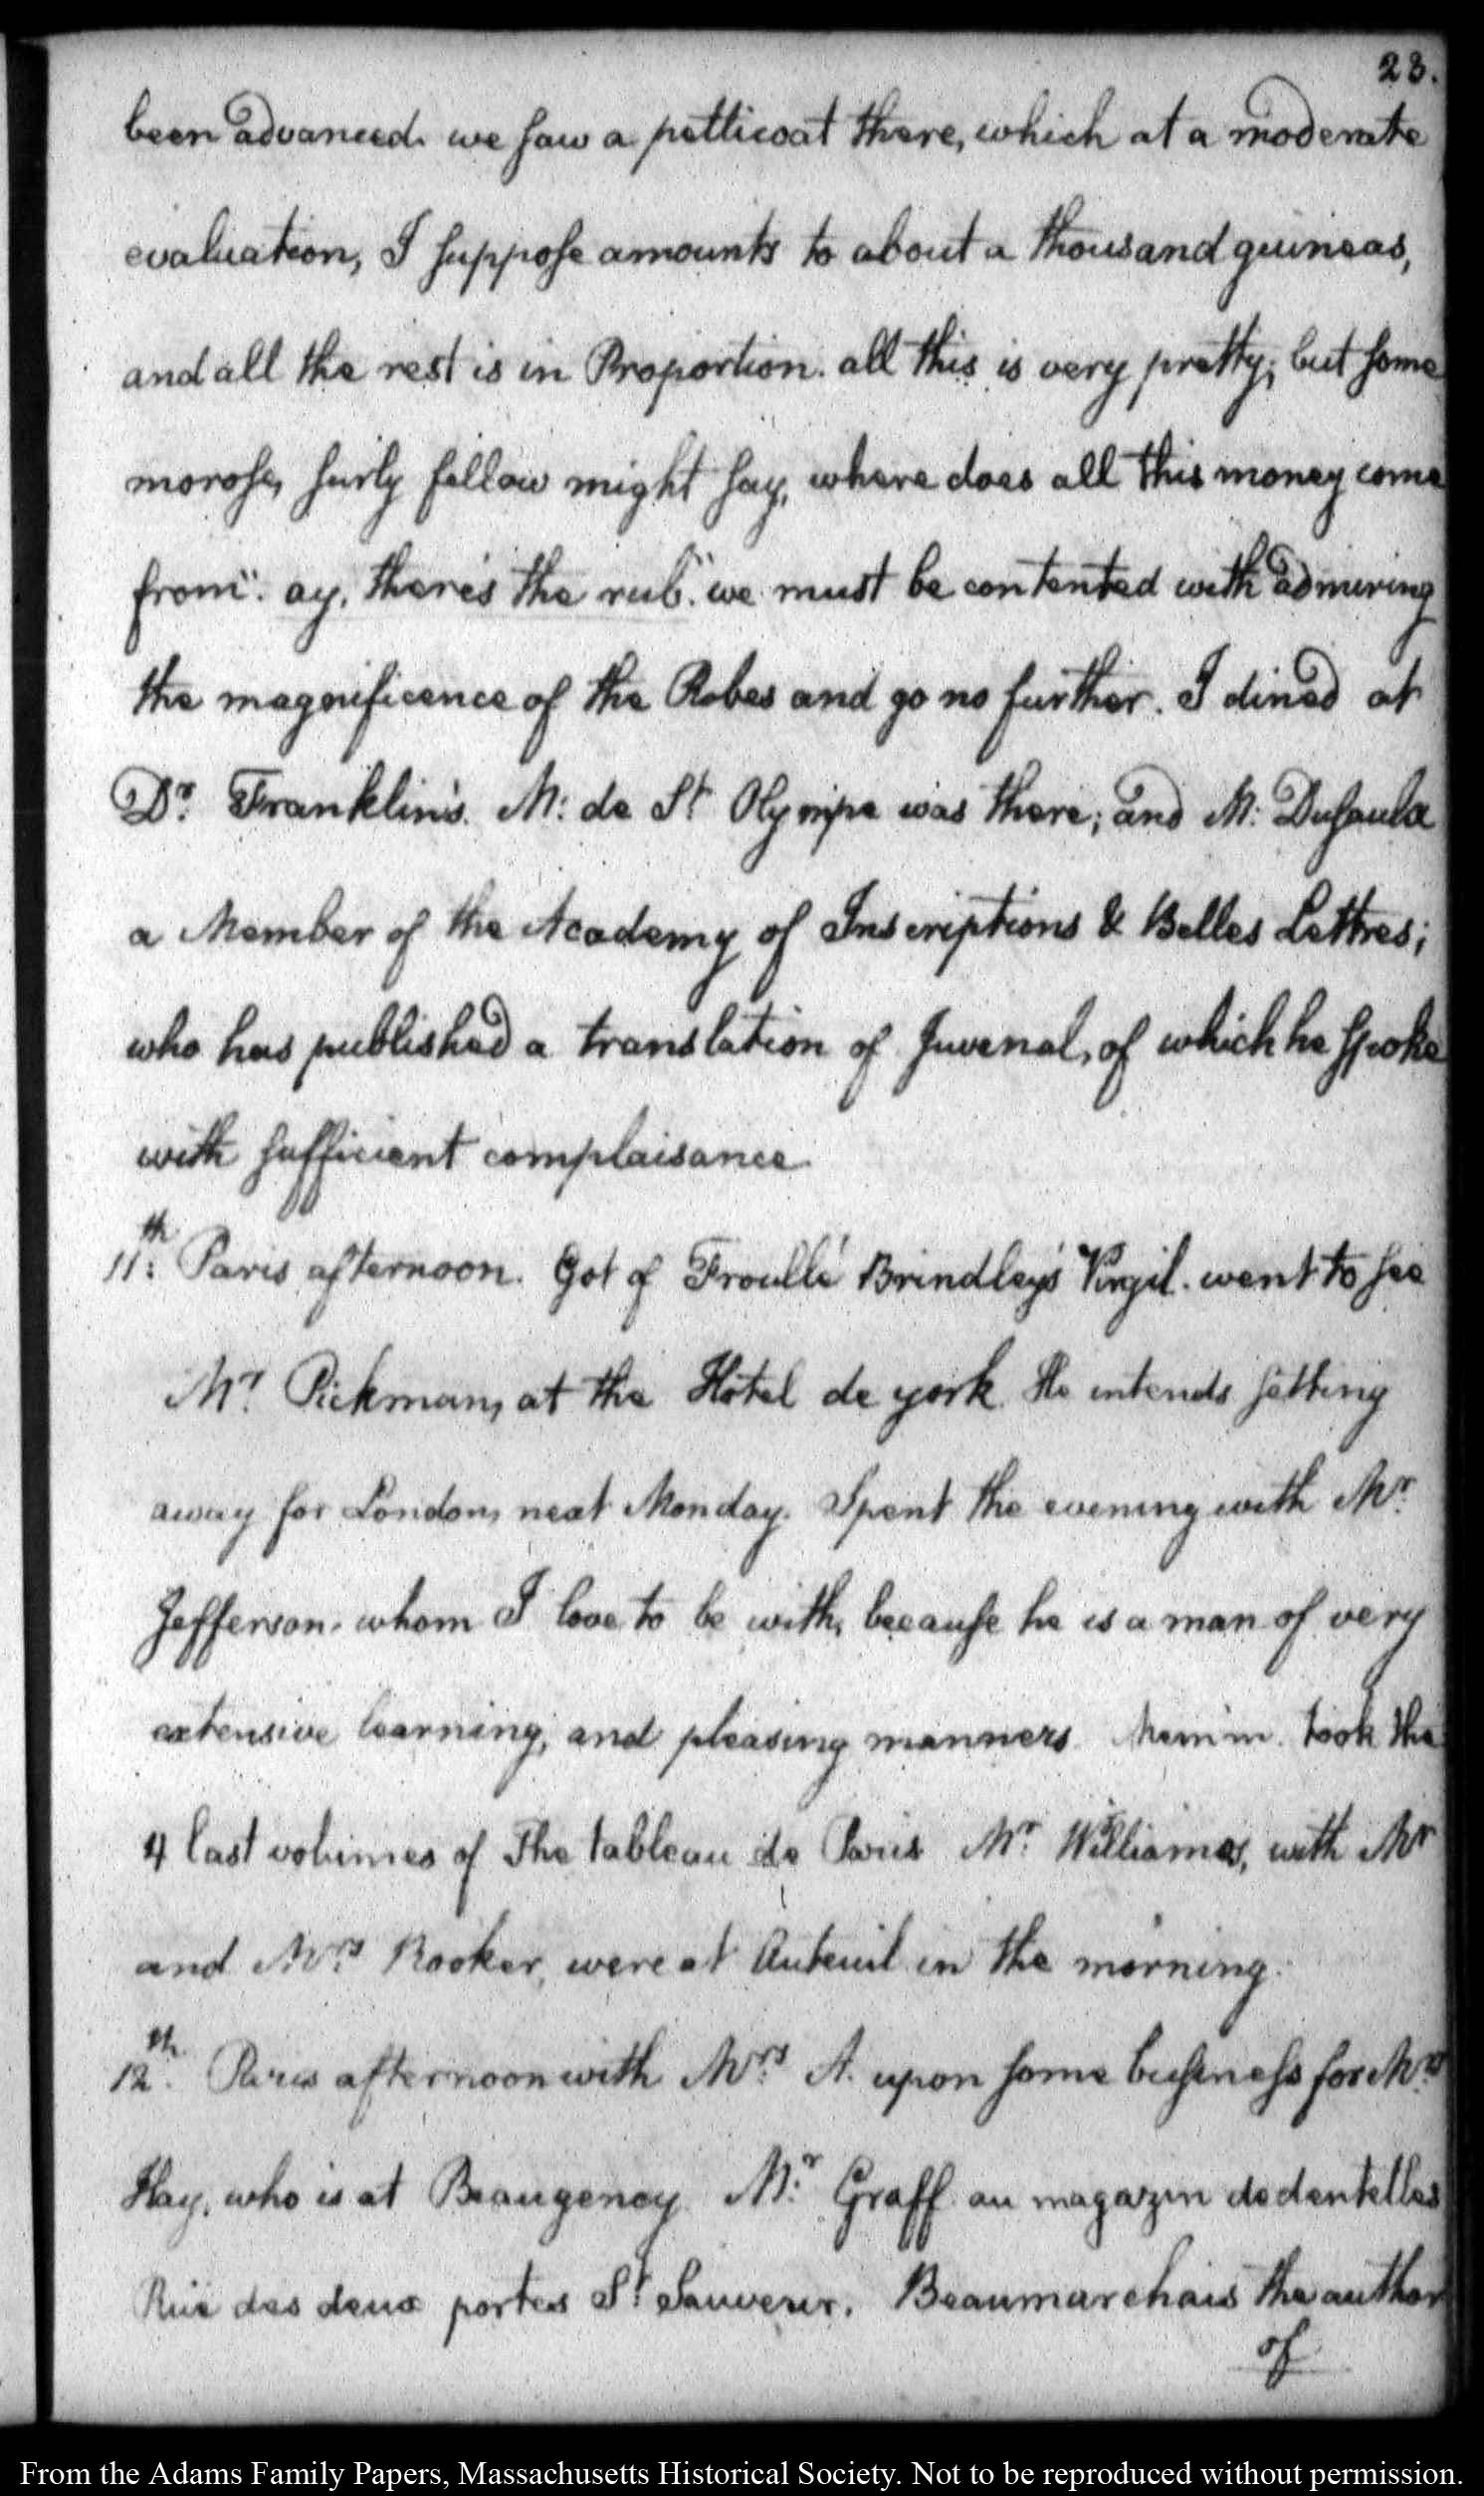 23.
been advanced. we saw a petticoat there, which at a moderate
evaluation, I suppose amounts to about a thousand guineas,
and all the rest is in Proportion. all this is very pretty; but some
morose, surly fellow might say, where does all this money come
from". ay, there's the rub". we must be contented with admiring
the magnificence of the Robes and go no further. I dined at
Dr. Franklin's. M: de St. Olympe was there; and M: Dusaulx
a Member of the Academy of Inscriptions & Belles Lettres;
who has published a translation of Juvenal, of which he spoke
with sufficient complaisance.
11th: Paris afternoon. Got of Froullé Brindley's Virgil. went to see
Mr. Pickman, at the Hôtel de york. He intends setting
away for London, next Monday. Spent the evening with Mr.
Jefferson. whom I love to be with, because he is a man of very
extensive learning, and pleasing manners. Mem'm. took the
4 last volumes of The tableau de Paris Mr. Williamos, with Mr
and Mrs. Rooker, were at Auteuil in the morning.
12th. Paris afternoon with Mrs. A. upon some business for Mrs.
Hay, who is at Beaugency. Mr. Graff. au magazin de dentelles
Rüe des deux portes St. Sauveur. Beaumarchais the author
of
From the Adams Family Papers, Massachusetts Historical Society. Not to be reproduced without permission.